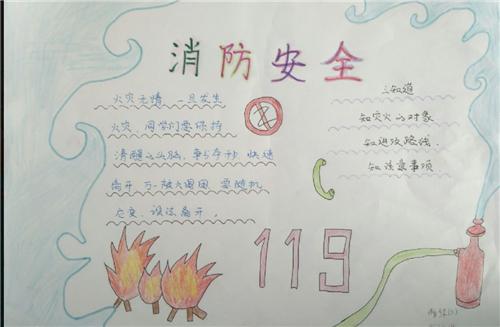 消防安全
火灾无情，一旦发生
火灾，同学们要保持
清醒的头脑，争分夺秒，快速
离开，万一被火围困，要随机
应变，设法离开。
三知道
知灾火的对象
知进攻路线
知注意事项
119